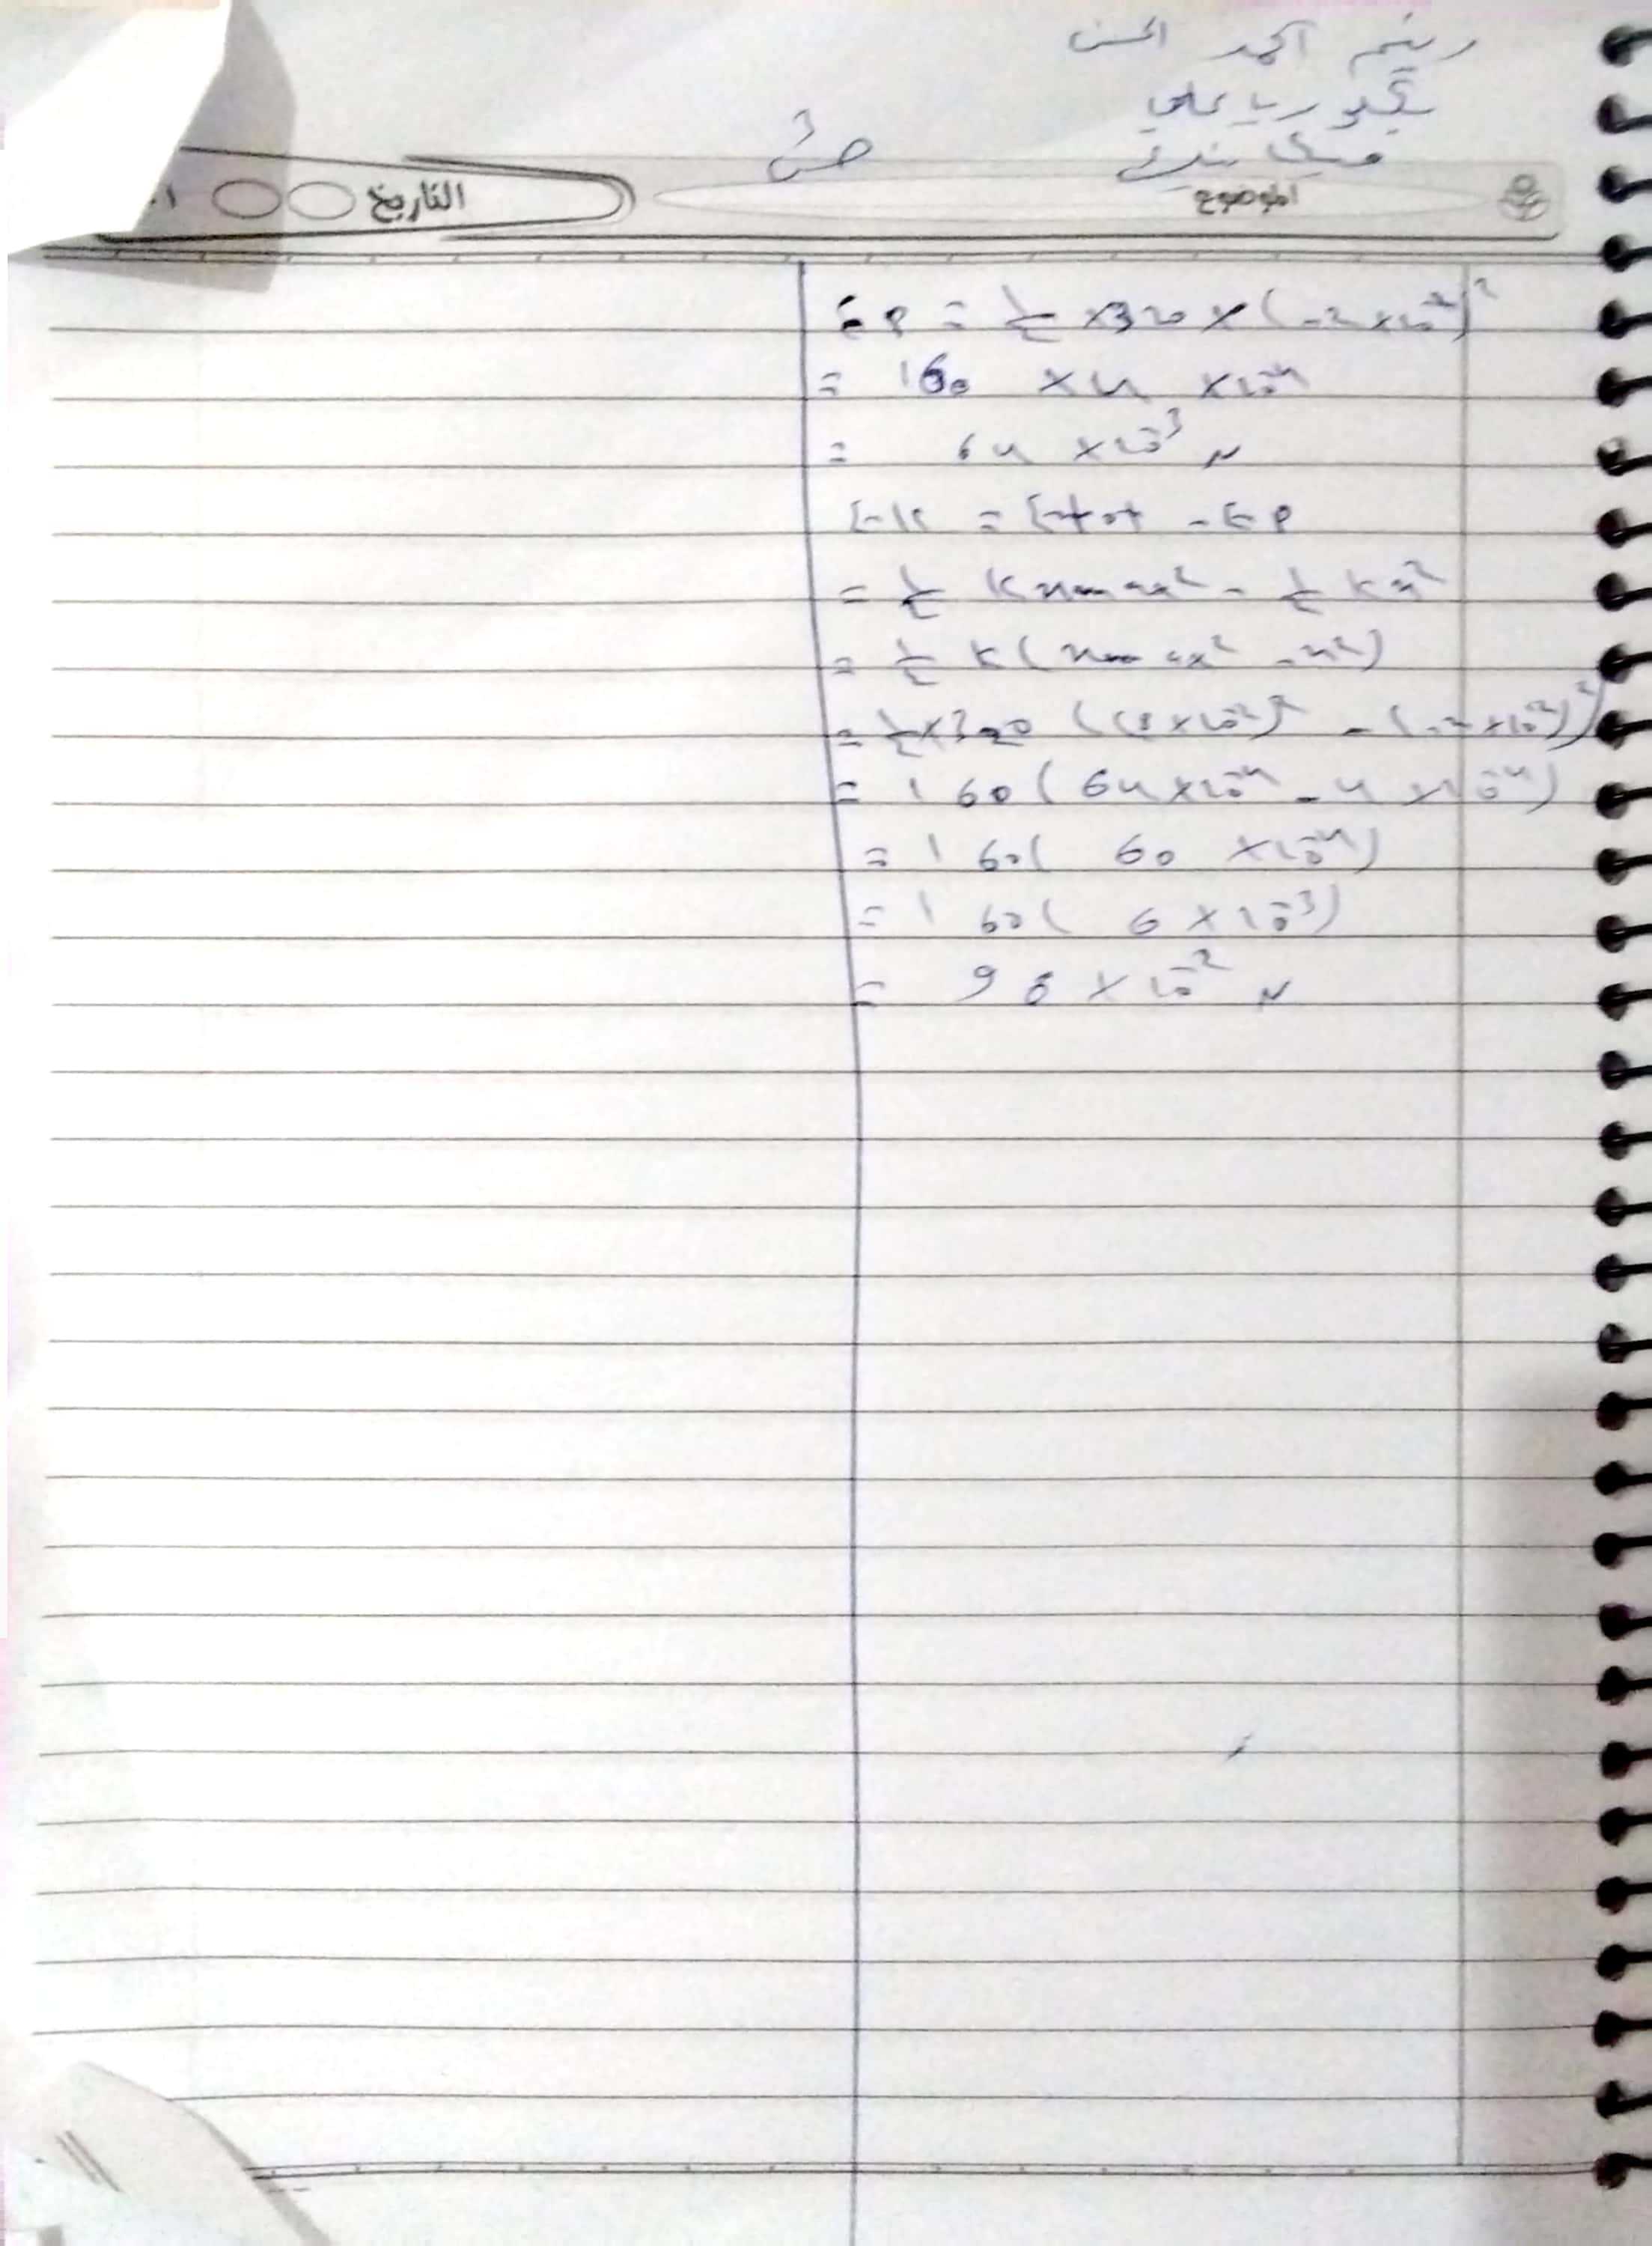 رنيم أحمد الحسن
بكلوريا علمي
حمص
الموضوع
التاريخ
Ep = 1/2 × 320 × (-2 × 10^-2)^2
= 160 × 4 × 10^-4
= 64 × 10^-3 N
Ek = Etot - Ep
= 1/2 k xmax^2 - 1/2 k x^2
= 1/2 k (xmax^2 - x^2)
= 1/2 × 320 ((8 × 10^-2)^2 - (-2 × 10^-2)^2)
= 160 (64 × 10^-4 - 4 × 10^-4)
= 160 (60 × 10^-4)
= 160 (6 × 10^-3)
= 96 × 10^-2 N